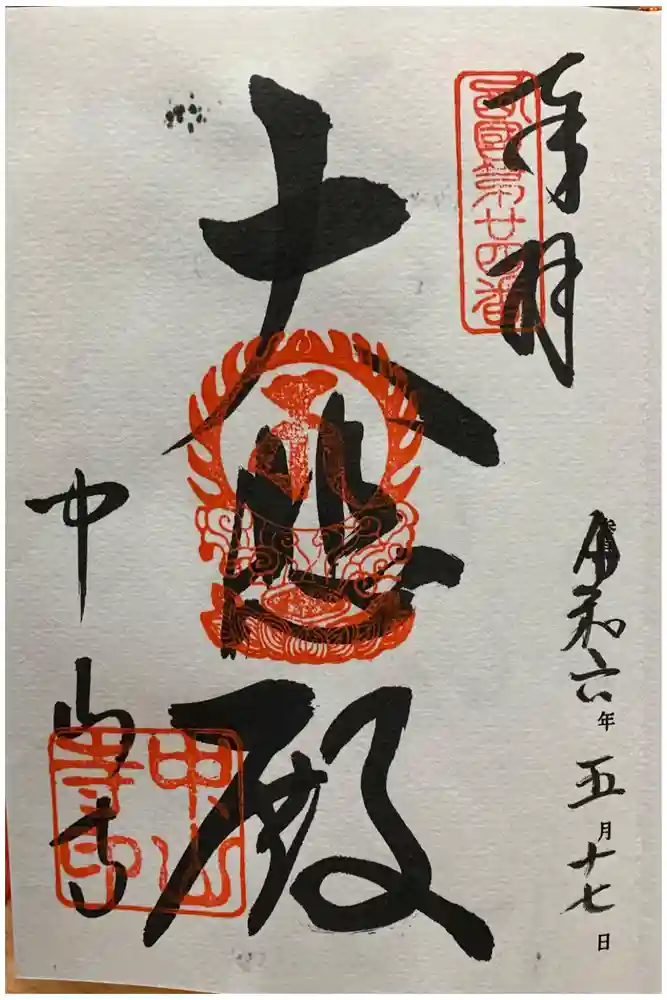 奉拝
西國第廿四番
令和六年五月十七日
大悲殿
中山寺
中山
寺印